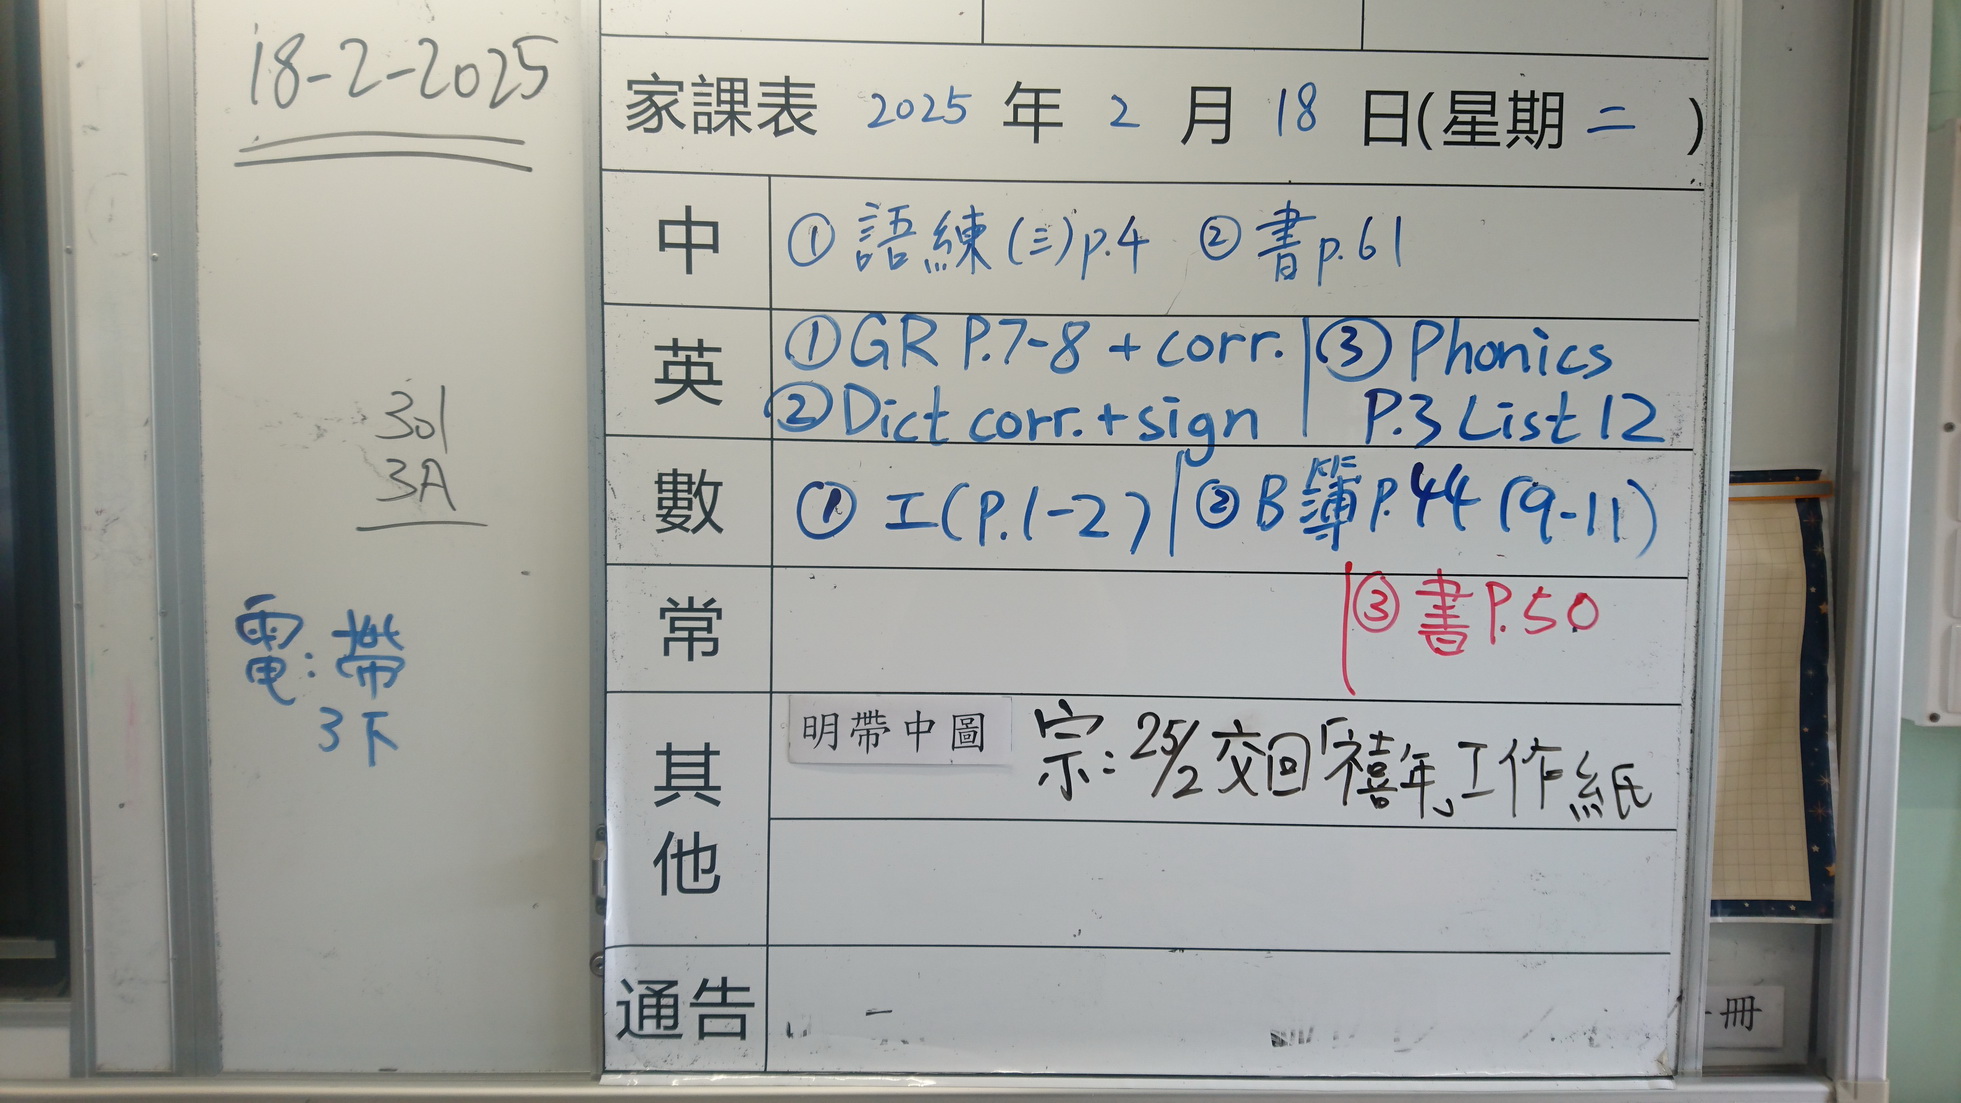 18-2-2025
301
3A
電:帶
3下
家課表 2025 年 2 月 18 日(星期 二 )
中 ① 語練(三)p.4 ② 書p.61
英 ① GR P.7-8 + corr. ③ Phonics
② Dict corr. + sign P.3 List 12
數 ① 工(P.1-2) ② B簿P.44 (9-11)
常 ③ 書P.50
其他 明帶中圖 宗:25/2交回「禧年」工作紙
通告
冊